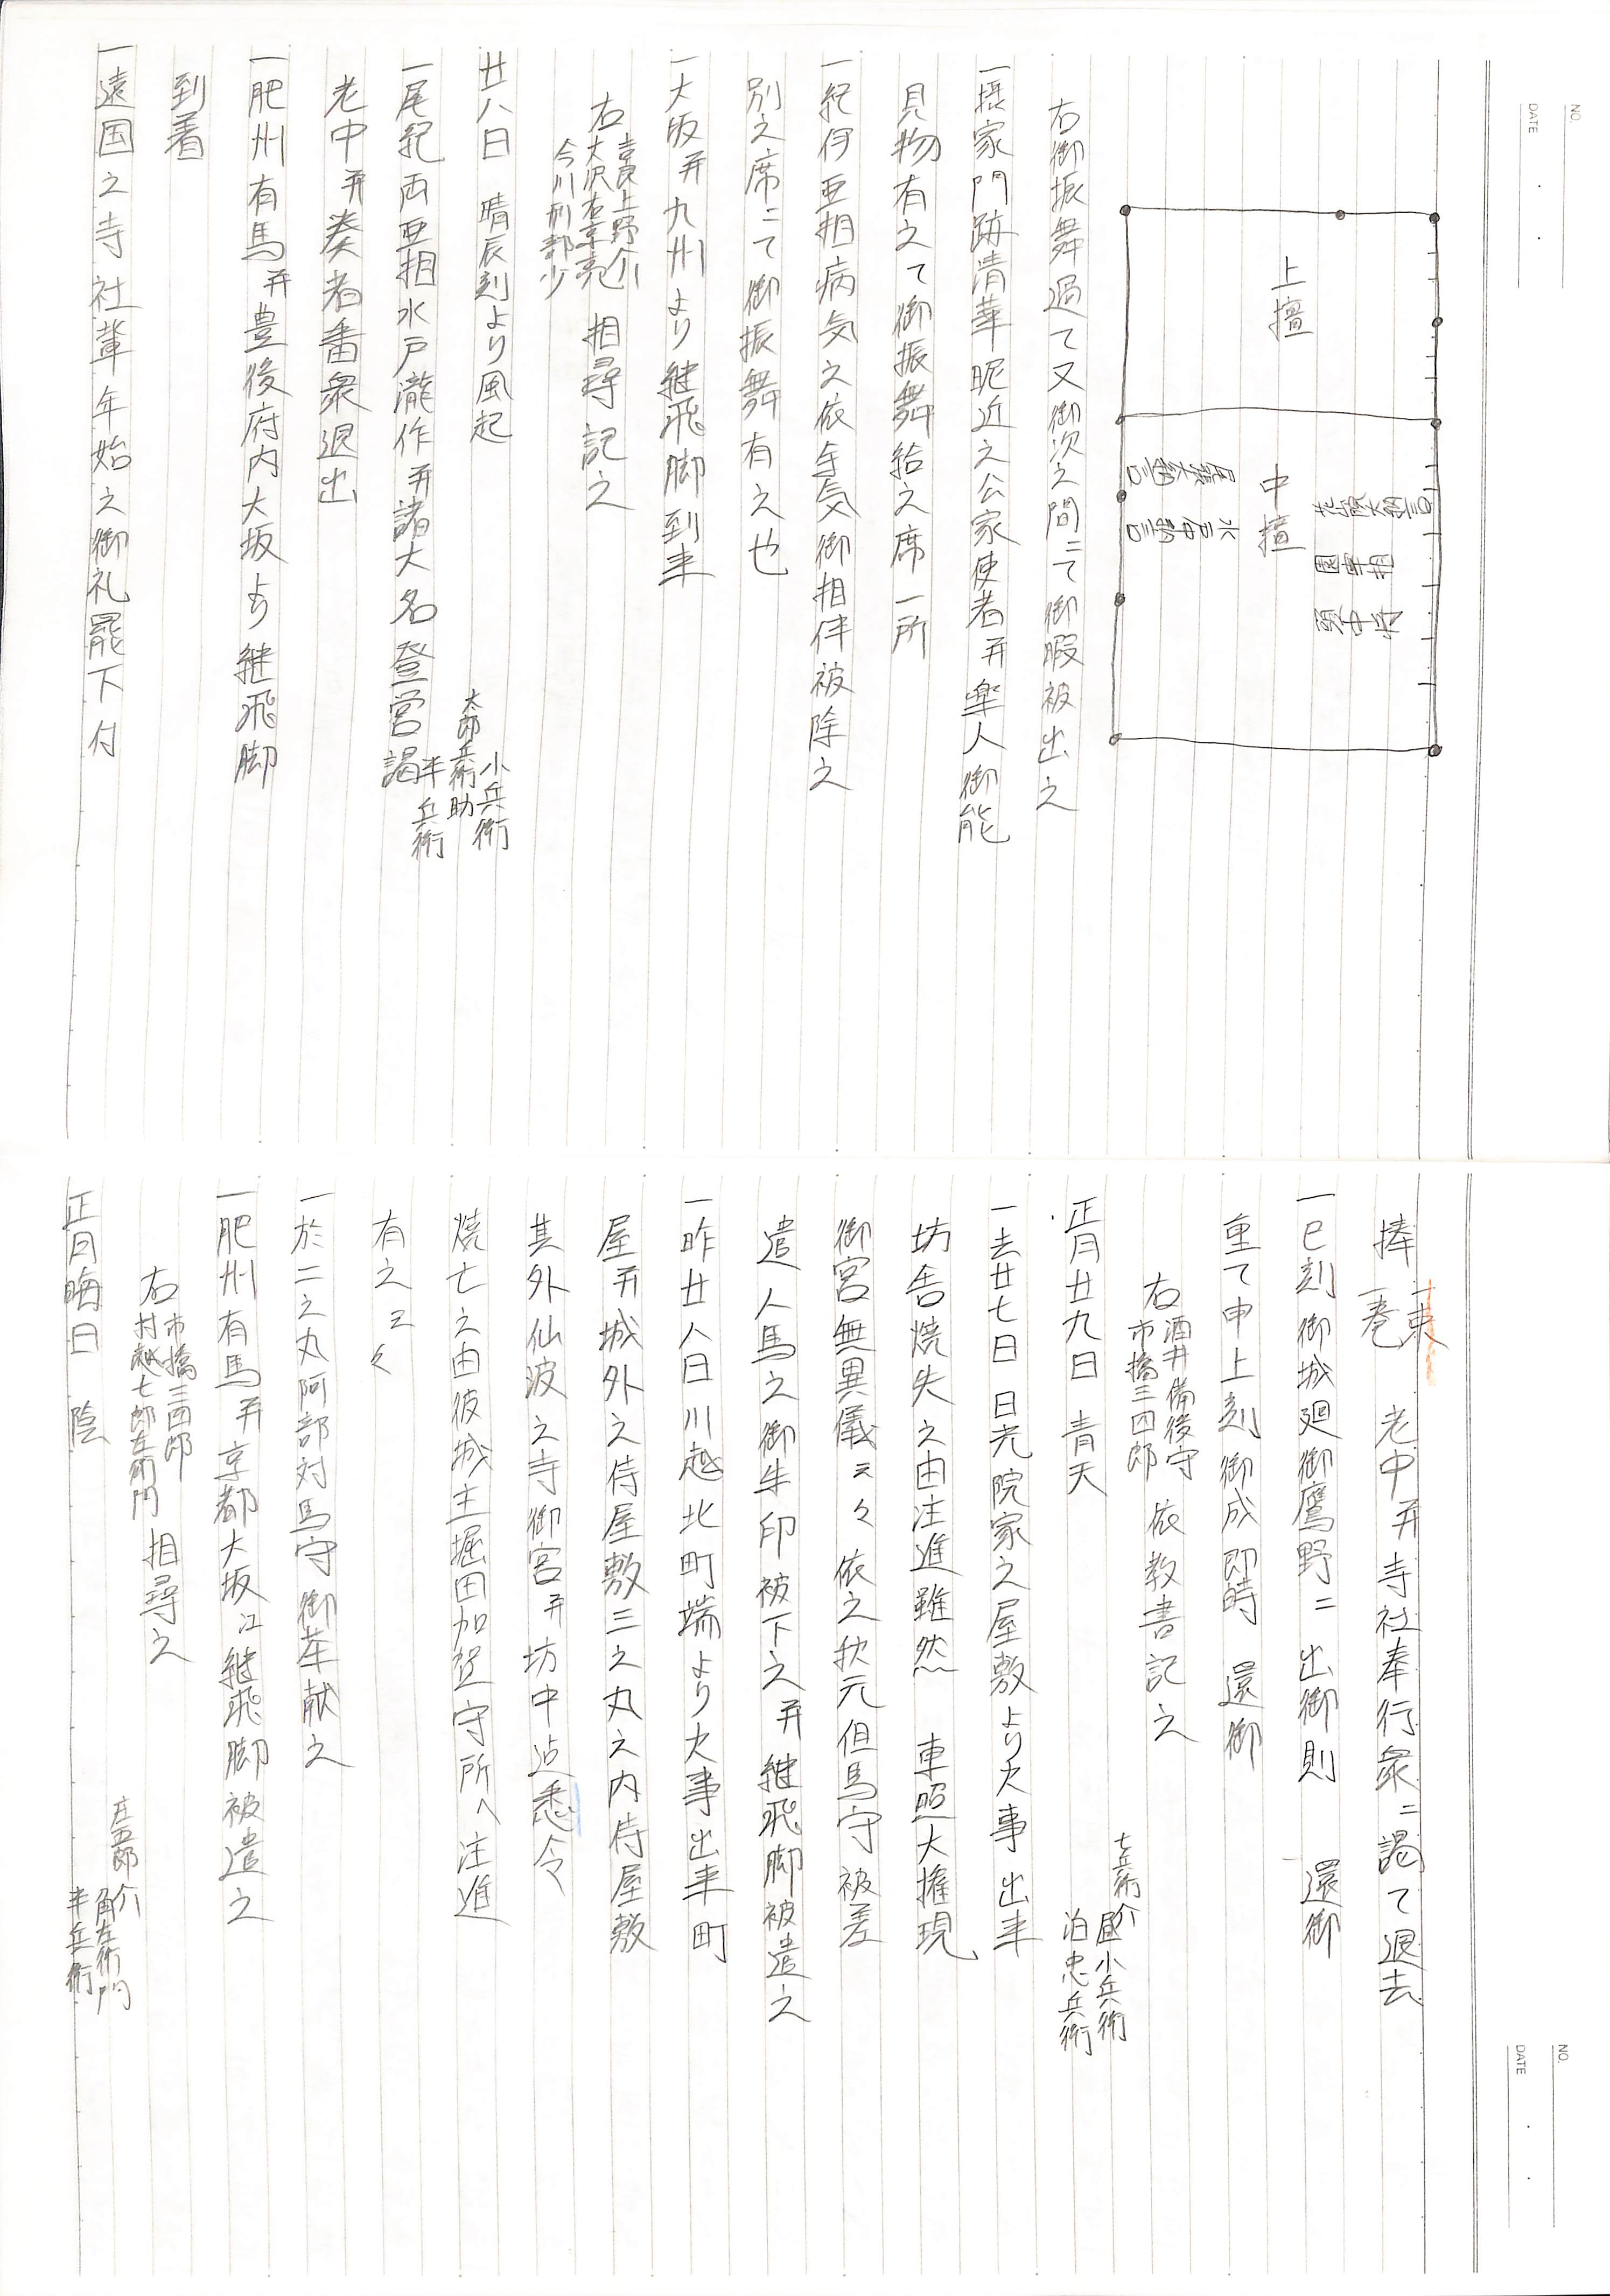 NO.
DATE
上擅
中擅
尾張大納言
水戸中納言
紀伊大納言
右御振舞過て又御次之間ニて御暇被出之
一摂家門跡清華昵近之公家使者并楽人御能
見物有之て御振舞給之席一所
一紀伊亜相病気之依余気御相伴被除之
別之席ニて御振舞有之也
一大坂并九州より継飛脚到来
右 吉良上野介 大沢右京亮 今川刑部少 相尋記之
廿八日 晴辰刻より風起
小兵衛
太郎兵衛助
半兵衛
一尾紀両亜相水戸瀧作并諸大名登営謁
老中并奏者番衆退出
一肥州有馬并豊後府内大坂より継飛脚
到着
一遠国之寺社輩年始之御礼罷下付
NO.
DATE
捧 一束 一巻 老中并寺社奉行衆ニ謁て退去
一巳刻御城廻御鷹野ニ出御則 還御
重て申上刻御成即時 還御
右 酒井備後守 市橋三四郎 依教書記之
正月廿九日 青天
七兵衛介
小兵衛
泊忠兵衛
一去廿七日日光院家之屋敷より火事出来
坊舎焼失之由注進雖然 東照大権現
御宮無異儀云々依之秋元但馬守被差
遣人馬之御朱印被下之并継飛脚被遣之
一昨廿八日川越北町端より火事出来町
屋并城外之侍屋敷三之丸之内侍屋敷
其外仙波之寺御宮并坊中迄悉令
焼亡之由彼城主堀田加賀守所へ注進
有之云々
一於二之丸阿部対馬守御茶献之
一肥州有馬并京都大坂江継飛脚被遣之
右 市橋三四郎 村越七郎左衛門 相尋之
正月晦日 陰
庄五郎介
角左衛門
半兵衛